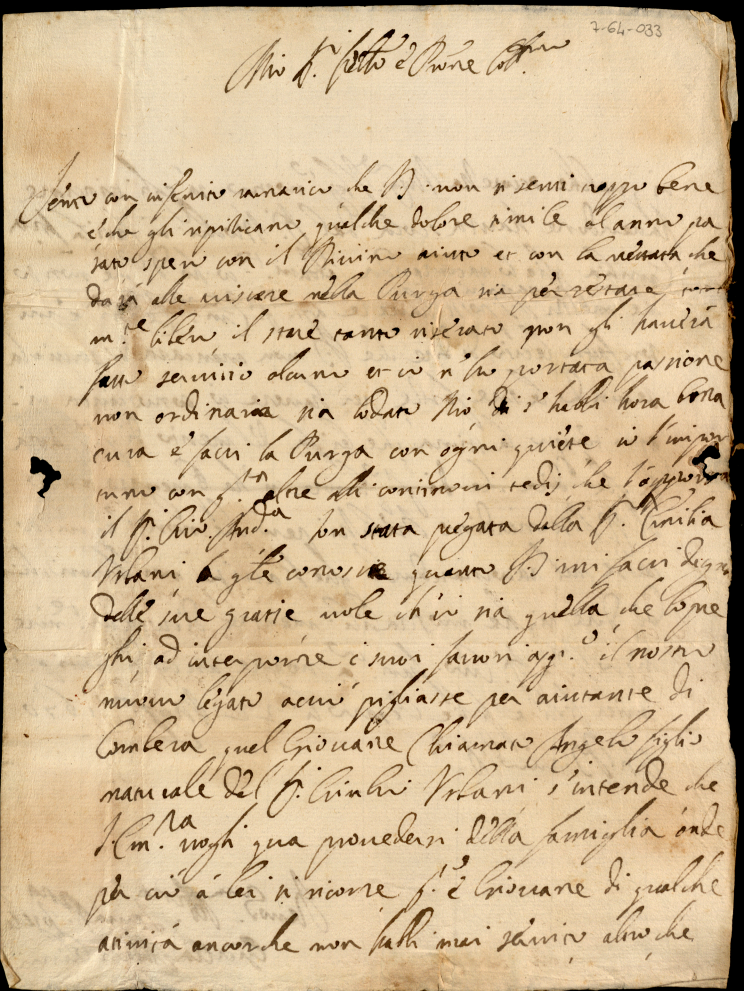 7-64-033
Mio Sr. e Prone
Sento con infinito ramarico che V.S. non si senti troppo bene
e che gli ripilicano qualche dolore simile al anno pa
sato spero con il Divino aiuto et con la che
dara alle viscere nella Purga sia per restare
m.te libero il stare tanto riserato non gli havera
fatto servitio alcuno et io n'ho portata passione
non ordinaria sia lodato Dio s'habbi hora bona
cura e facci la Purga con ogni quiete io l'impor
tuno con oltre alli continovi tedij che l'apporta
il Sr. And.a son stata pregata dalla Sra.
Urbani quanto V.S. mi facci degna
delle sue gratie vole ch'io sia quella che lo pre
ghi ad interporre i suoi favori app.o il nostro
nuovo legato acciò pigliasse per aiutante di
Camera quel Giovane Chiamato Angelo figlio
naturale del Sr. Urbani s'intende che
vogli qua provedersi della famiglia onde
per cio a lei si ricorre è Giovane di qualche
ativita ancorche non habbi mai servito altro che